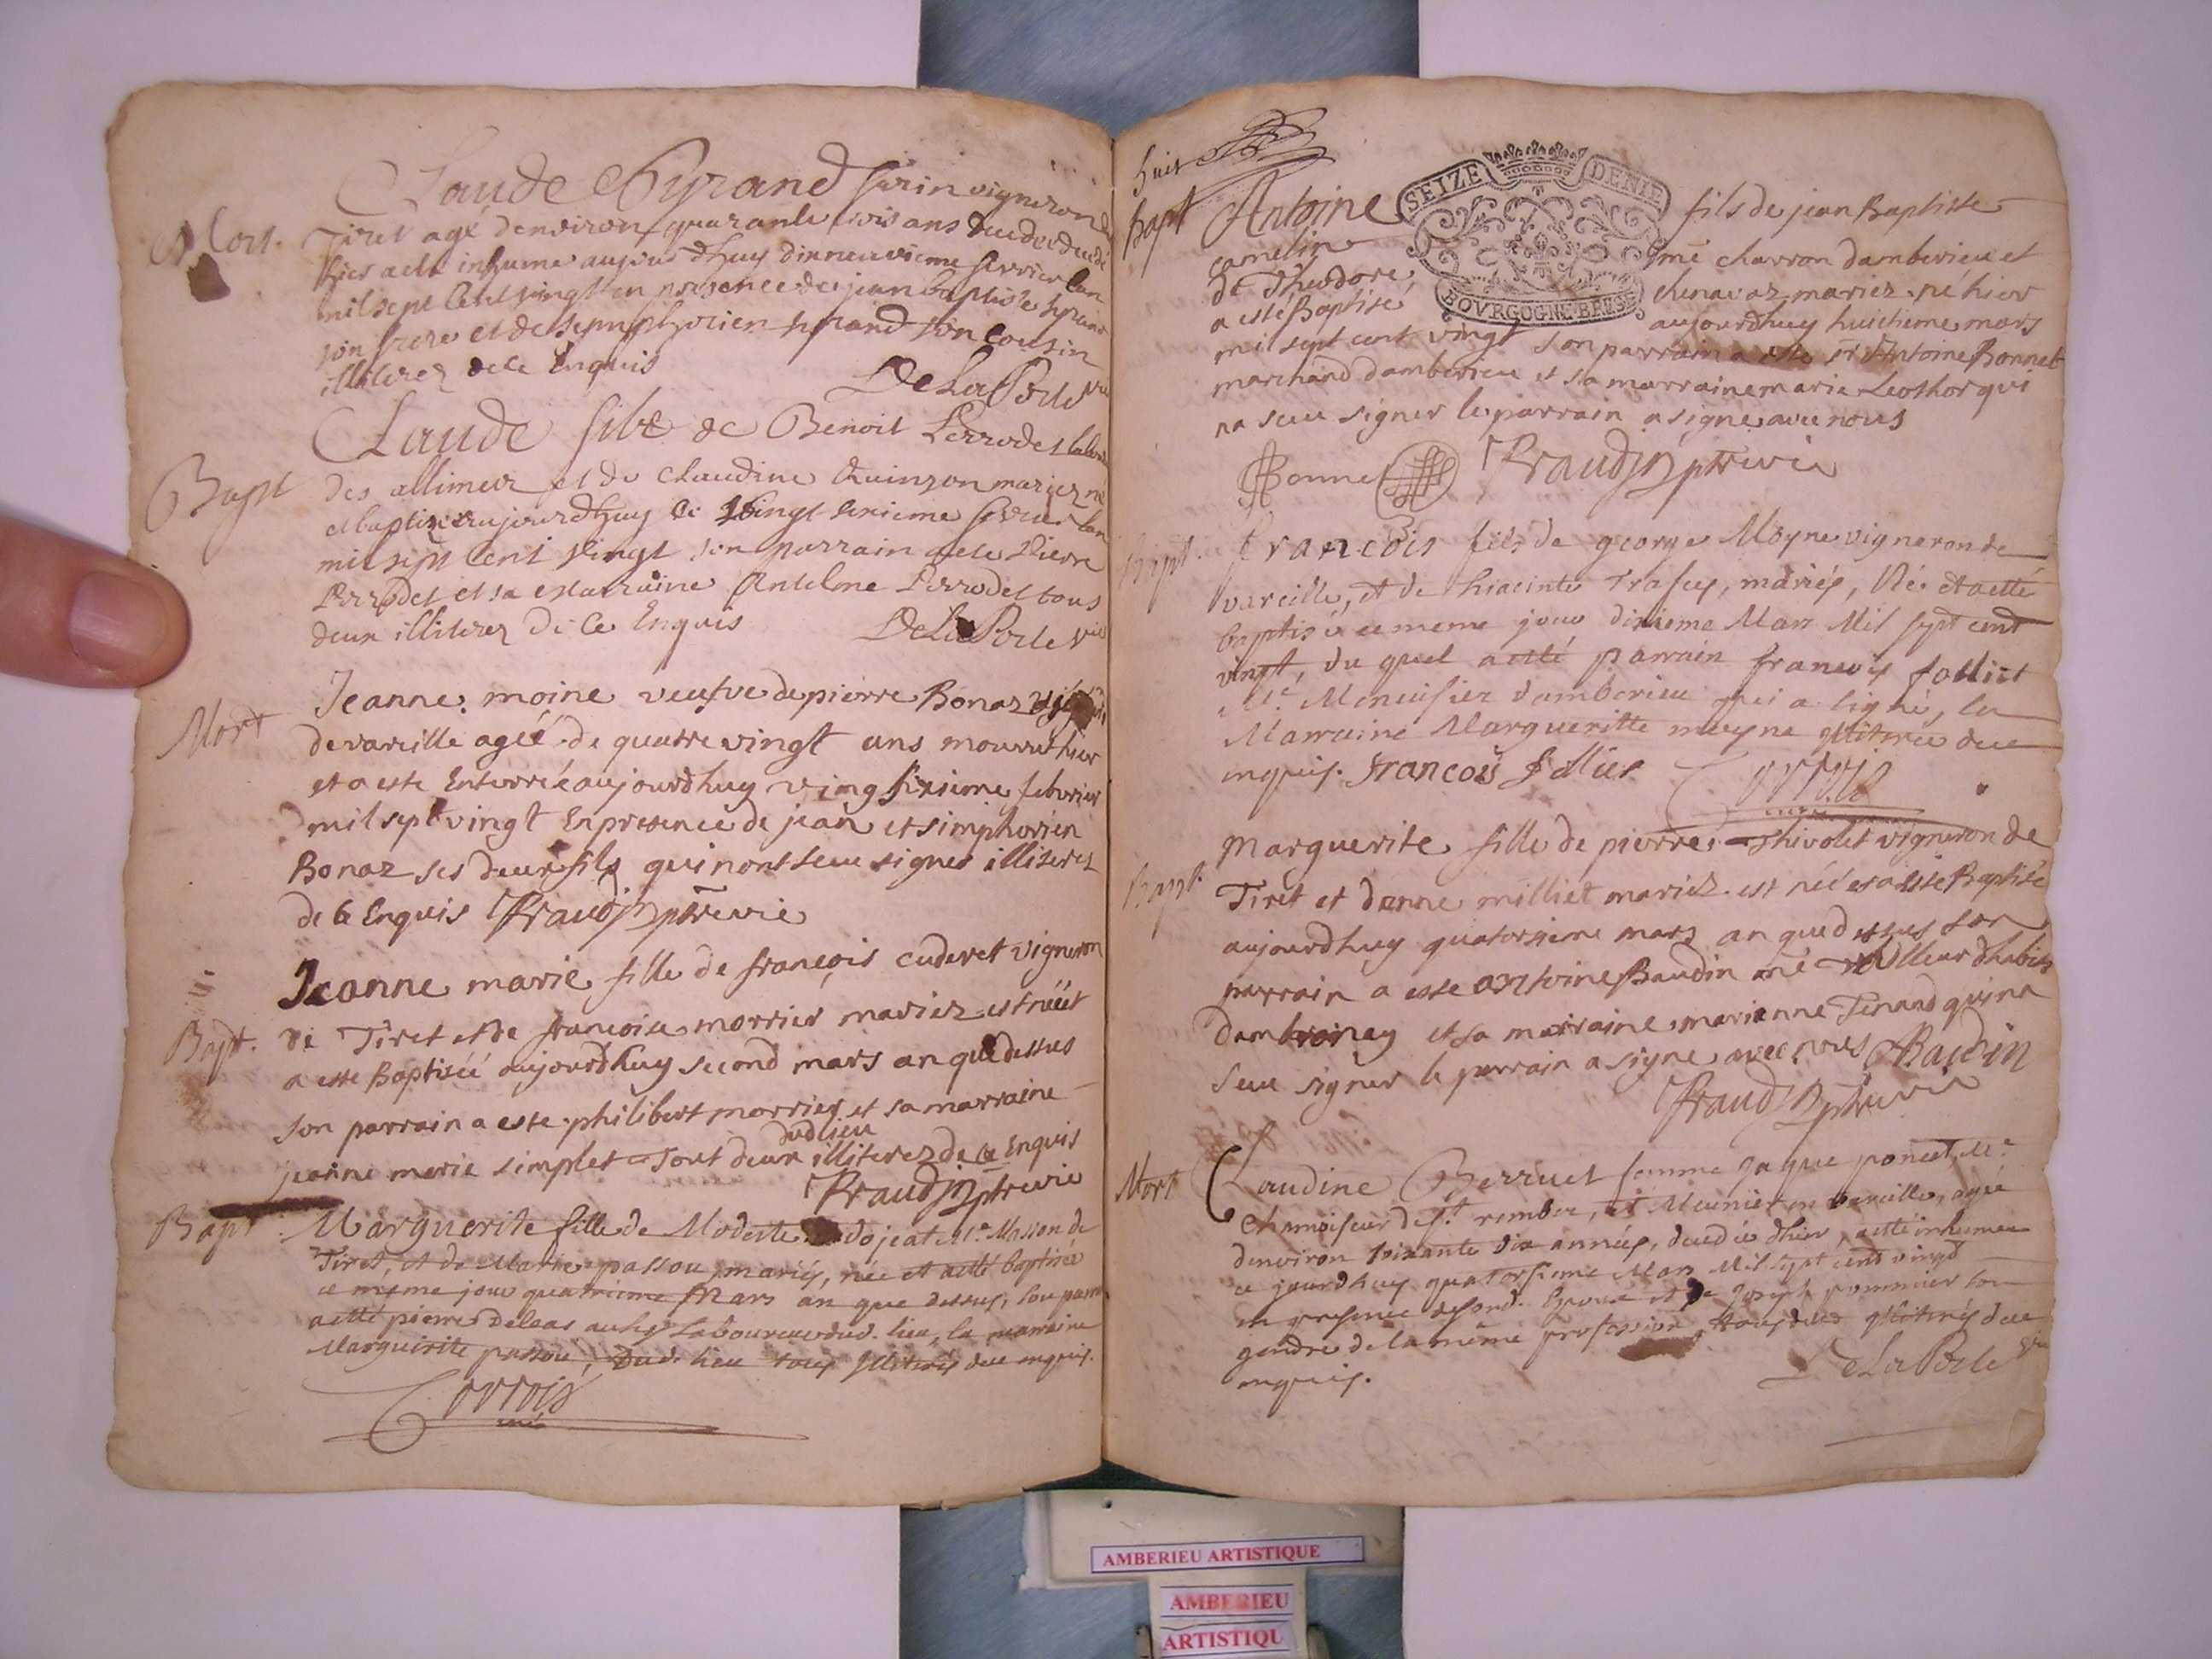 Mort.
Claude Hyrand serin vigneron de
Tiret agé denviron quarante trois ans
hier a ete inhumé aujourdhuy dixneuvieme fevrier lan
mil sept Cent vingt en presence de jean baptiste hyrand
son frere et de simphorien hyrand son cousin
illiterez de ce Enquis
DeLaPorte vic
Bapt
Claude fils de Benoit Perrodet
des allimes et de Claudine Quinson mariez né
et baptizé aujourdhuy le vingt fevrier lan
mil sept Cent vingt son parrain a ete Pierre
Perrodet et sa marraine Antelme Perrodet tous
deux illiterez De Ce Enquis
DeLaPorte vic
Mort
Jeanne moine veufve de pierre Bonaz
de vareille agéé de quatre vingt ans mourut hier
et a este Enterréé aujourdhuy vingt sixieme febvrier
mil sept vingt En presence de jean et simphorien
Bonaz ses deux fils qui nont sceu signer illiterez
de ce Enquis Fraud ptre vic
Bapt.
Jeanne marie fille de françois cuderet vigneron
de Tiret et de francoise morrier mariez est néé et
a este Baptiséé aujourdhuy second mars an que dessus
son parrain a este philibert morrier et sa marraine
dudlieu
jeanne marie simplet tout deux illiterez de ce Enquis
Fraud ptre vic
Bapt.
Marguerite fille de Modeste dojeat Mᵉ Masson de
Tiret, et de Marie passou, mariés, née et a etté baptisée
ce meme jour quatrieme Mars an que dessus, son parrin
a etté pierre Laboureur dud. lieu, la marraine
Marguerite passou, Dud. lieu tous illiterés de ce enquis.
huit
SEIZE DENIE
BOVRGOGNE BRESSE
Bapt
Antoine fils de jean Baptiste
camelin mᵉ charron damberieu et
de Theodore chenavaz mariez né hier
a esté Baptisé aujourdhuy huictieme mars
mil sept cent vingt son parrain a este sr Antoine Bonnet
marchand damberieu et sa marraine marie Leothor qui
na sceu signer le parrain a signe avec nous
Bonnet Fraud ptre vic
Bapt.
Francois fils de george Moyne vigneron de
vareille, et de hiacinte Trafey, mariés, Né et a etté
baptisé ce meme jour dixieme Mars Mil sept cent
vingt, du quel a etté parrain francois follict
Mᵉ Menuisier damberieu qui a signé, la
Marraine Margueritte moyne illiterée de ce
enquis. francois follier
Bapt.
Marguerite fille de pierre Thivolet vigneron de
Tiret et danne milliet mariez est néé et a este Baptiséé
aujourdhuy quatorzieme mars an que dessus son
parrain a este antoine Baudin mᵉ tailleur dhabits
dambronay et sa marraine marianne Tenand qui na
sceu signer le parrain a signe avec nous Baudin
Fraud ptre vic
Mort
Claudine Berruet femme Jaque poncet, Mᵉ
Chamoiseur de Sᵗ rember, et Meunier en vareille, agée
denviron soixante dix années, decedée dhier, a etté inhumée
ce jourdhuy quatorsieme Mars Mil sept cent vingt
en presence de sond. Epoux et de Joseph pommier son
gendre de la même profession, tous deux illiterés de ce
enquis.
DeLaPorte vic
AMBERIEU ARTISTIQUE
AMBERIEU
ARTISTIQU